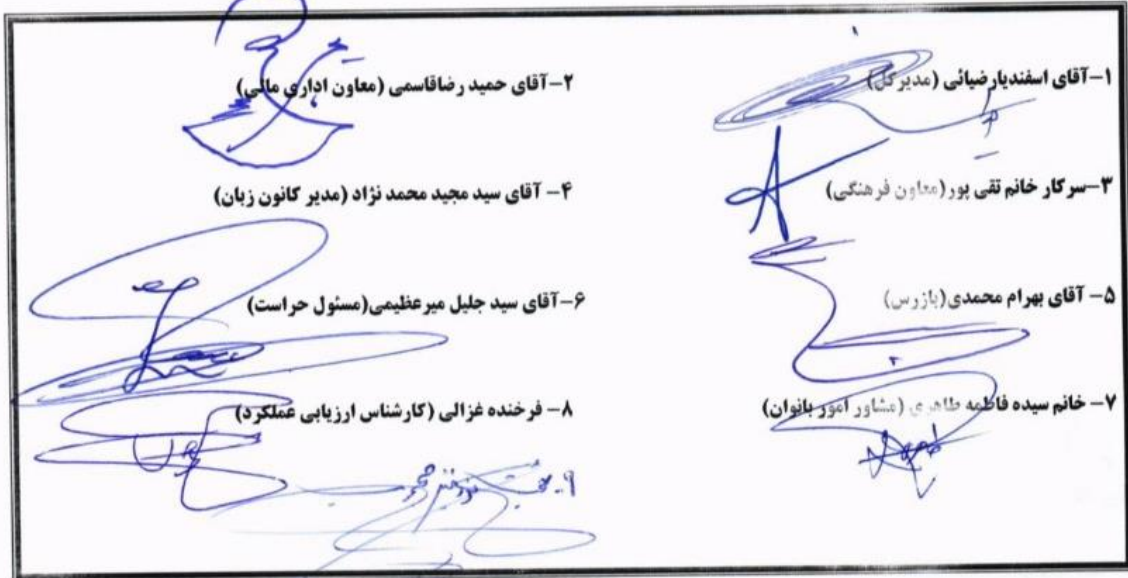 ۱-آقای اسفندیار ضیائی (مدیرکل)
۲-آقای حمید رضاقاسمی (معاون اداری مالی)
۳-سرکار خانم تقی پور(معاون فرهنگی)
۴- آقای سید مجید محمد نژاد (مدیر کانون زبان)
۵- آقای بهرام محمدی(بازرس)
۶-آقای سید جلیل میرعظیمی(مسئول حراست)
۷- خانم سیده فاطمه طاهری (مشاور امور بانوان)
۸- فرخنده غزالی (کارشناس ارزیابی عملکرد)
۹-